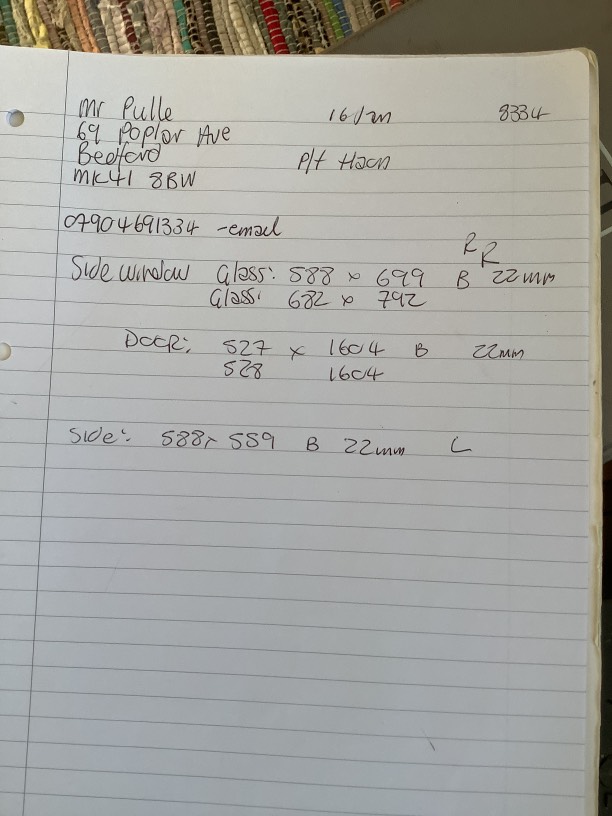 Mr Pulle 16/Jan 8334
69 Poplar Ave
Bedford P/t Haan
MK41 8BW
07904691334 - email
R R
Side window Glass: 588 x 699 B 22mm
Glass: 682 x 792
Door: 527 x 1604 B 22mm
528 1604
Side: 588 x 559 B 22mm L